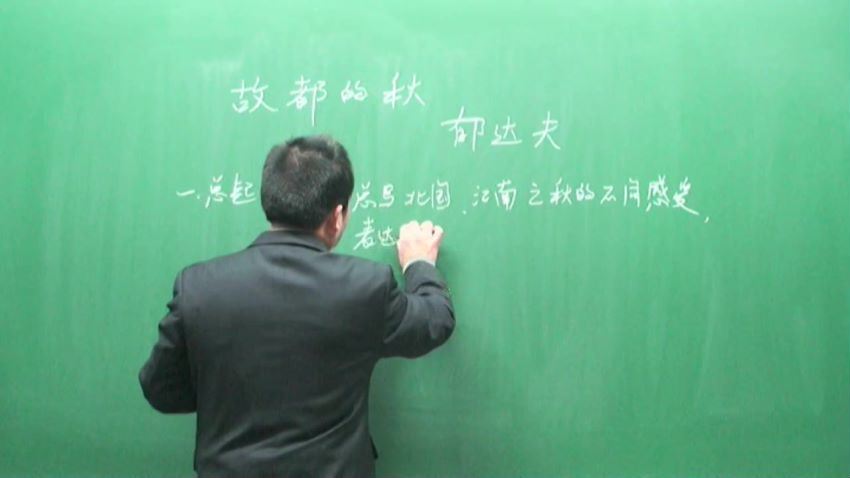 故都的秋
郁达夫
一.总起 总写北国、江南之秋的不同感受,
表达